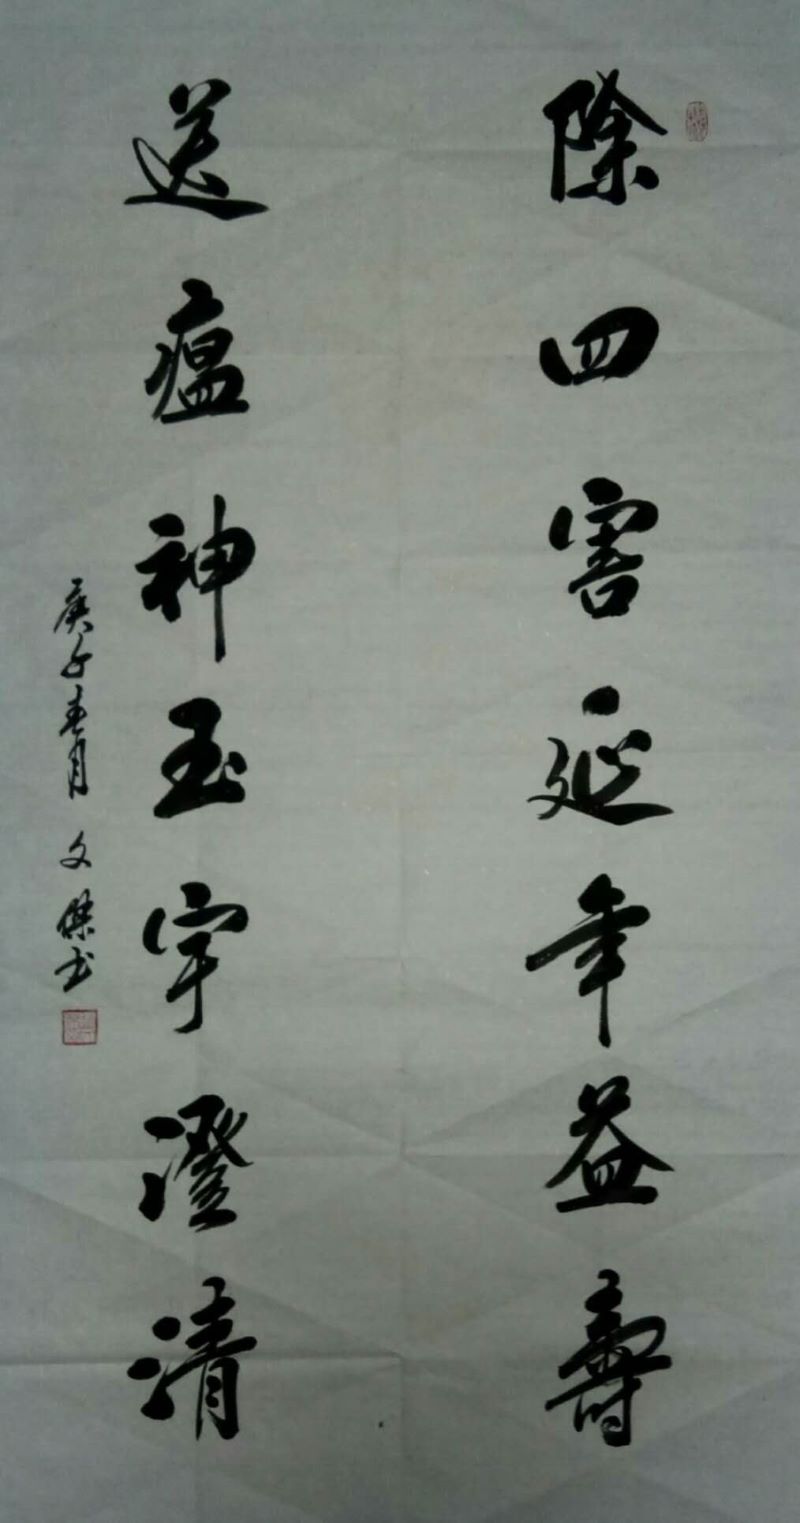 除四害延年益壽
送瘟神玉宇澄清
庚子春月 文傑书